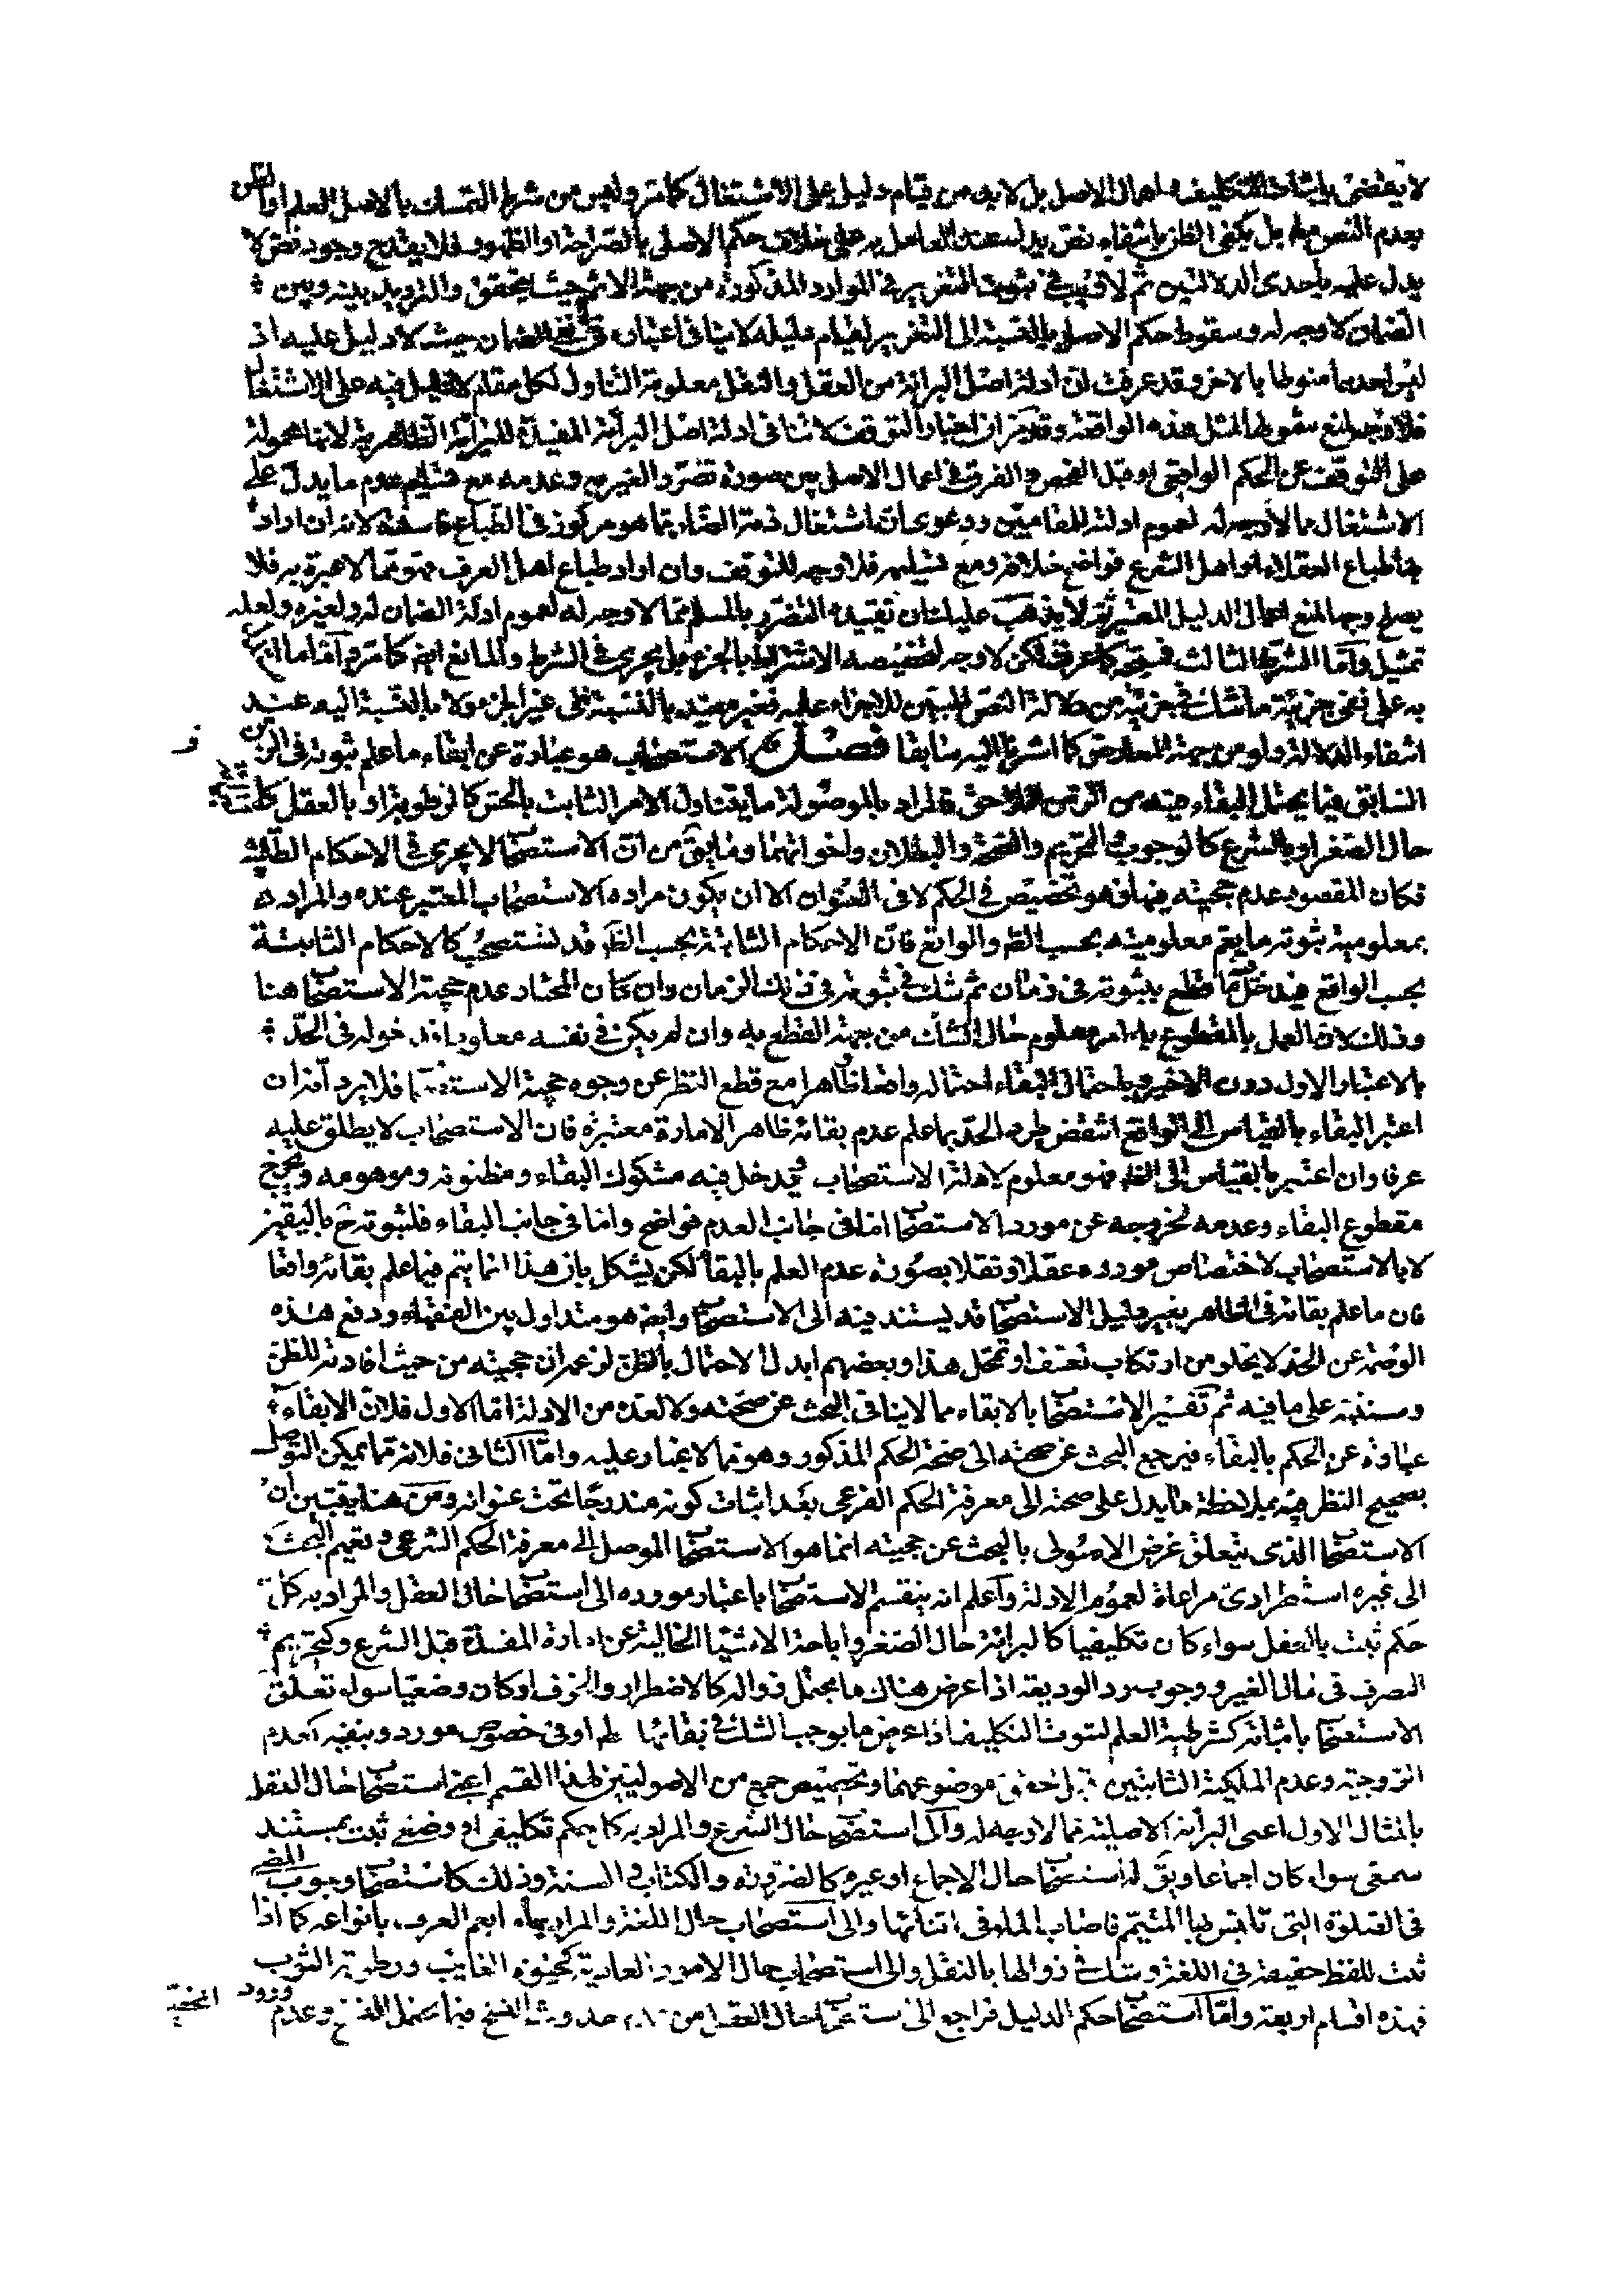 لا يقضى باثبات التكليف واهمال الاصل بل لابد من قيام دليل على الاشتغال كما مر وليس من شرط التمسك بالاصل العلم او الظن
بعدم النص بل يكفى الظن بانتفاء نص يدل عند العامل به على خلاف حكم الاصل بالصراحة او الظهور فلا يقدح وجود نص لا
يدل عليه باحدى الدلالتين ثم لا فى ثبوت التعزير فى الموارد المذكورة من جهة الاثم حيث يتحقق والترديد بينه وبين
الضمان لا وجه له وسقوط حكم الاصل بالنسبة الى التعزير لقيام دليله لا ينافى اعتباره فى نفى الضمان حيث لا دليل عليه اذ
ليس احدهما منوطا بالاخر وقد عرفت ان ادلة اصل البرائة من العقل والنقل معلومة التناول لكل مقام لا دليل فيه على الاشتغال
فلا وجه لمنع شمولها لمثل هذه الواقعة وقد مر ان اخبار التوقف لا تنافى ادلة اصل البرائة المفيدة للبرائة الظاهرية لانها محمولة
على التوقف عن الحكم الواقعى او قبل الفحص والفرق فى اعمال الاصل بين صورة تضرر الغير به وعدمه مع تسليم عدم ما يدل على
الاشتغال مما لا وجه له لعموم ادلة المقامين ودعوى ان اشتغال ذمة الضار مما هو مركوز فى الطباع فاسدة لانه ان اراد
بها طباع العقلاء او اهل الشرع فواضح خلافه ومع تسليمه فلا وجه للتوقف وان اراد طباع اهل العرف فهو مما لا عبرة به فلا
يصلح وجها لمنع اعمال الدليل المعتبر ثم لا يذهب عليك ان تقييده التضرر بالمسلم مما لا وجه له لعموم ادلة الضمان له ولغيره ولعله
تمثيل واما الشرط الثالث فمتجه كما عرفت لكن لا وجه لتخصيصه الاشتراط بالجزء بل يجرى فى الشرط والمانع ايضا كما مر واما ما
به على نفى جزئية ما شك فى جزئيته من دلالة النص المبين للاجزاء عليه فغير مفيد بالنسبة الى غير ما بالنسبة اليه عند
انتفاء الدلالة ولو من جهة المعارض كما اشرنا اليه سابقا فصل الاستصحاب هو عبارة عن ابقاء ما علم ثبوته فى الزمن
السابق فيما يحتمل البقاء فيه من الزمن اللاحق فالمراد بالموصولة ما يتناول الامر الثابت بالحس كالرطوبة او بالعقل
حال الصغر او بالشرع كالوجوب والتحريم والصحة والبطلان واخواتهما وما يق من ان الاستصحاب لا يجرى فى الاحكام الطلبية
فكان المقصود عدم حجيته فيها فهو تخصيص فى الحكم لا فى العنوان الا ان يكون مراده الاستصحاب المعتبر عنده والمراد
بمعلومية ثبوته ما يعم معلوميته بحسب الظاهر والواقع فان الاحكام الثابتة بحسب الظاهر قد تستصحب كالاحكام الثابتة
بحسب الواقع فيدخل ما قطع بثبوته فى زمان ثم شك فى ثبوته فى ذلك الزمان وان كان المختار عدم حجية الاستصحاب هنا
وذلك لان العمل بالمقطوع به امر معلوم حال الشك من جهة القطع به وان لم يكن فى نفسه معلوما فدخوله فى الحد
بالاعتبار الاول دون الاخير وباحتمال البقاء احتماله واقعا وظاهرا مع قطع النظر عن وجوه حجية الاستصحاب فلا يرد انه ان
اعتبر البقاء بالقياس الى الواقع انتقض طرد الحد بما علم عدم بقائه ظاهر الامارة معتبرة فان الاستصحاب لا يطلق عليه
عرفا وان اعتبر بالقياس الى الظاهر فهو معلوم لادلة الاستصحاب فيدخل فيه مشكوك البقاء ومظنونه وموهومه ويخرج
مقطوع البقاء وعدمه لخروجه عن مورد الاستصحاب اما فى جانب العدم فواضح واما فى جانب البقاء فلثبوته ح باليقين
لا بالاستصحاب لاختصاص مورده عقلا ونقلا بصورة عدم العلم بالبقاء لكن يشكل بان هذا انما يتم فيما علم بقائه واقعا
فان ما علم بقائه فى الظاهر بغير دليل الاستصحاب قد يستند فيه الى الاستصحاب وايضا هو متداول بين الفقهاء ودفع هذه
الوصمة عن الحد لا يخلو من ارتكاب تعسف او تمحل هذا وبعضهم ابدل الاحتمال بالظن لزعمه ان حجيته من حيث افادته للظن
وسننبه على ما فيه ثم تفسير الاستصحاب بالابقاء مما لا ينافى البحث عن صحته ولا لعده من الادلة اما الاول فلان الابقاء
عبارة عن الحكم بالبقاء فيرجع البحث عن صحته الى صحة الحكم المذكور وهو مما لا غبار عليه واما الثانى فلانه مما يمكن التوصل
بصحيح النظر فيه بملاحظة ما يدل على صحته الى معرفة الحكم الفرعى بعد اثبات كونه مندرجا تحت عنوانه ومن هنا يتبين ان
الاستصحاب الذى يتعلق غرض الاصولى بالبحث عن حجيته انما هو الاستصحاب الموصل الى معرفة الحكم الشرعى وتعميم البحث
الى غيره استطرادى مراعاة لعموم الادلة واعلم انه ينقسم الاستصحاب باعتبار مورده الى استصحاب حال العقل والمراد به كل
حكم ثبت بالعقل سواء كان تكليفيا كالبرائة حال الصغر واباحة الاشياء الخالية عن امارة المفسدة قبل الشرع وكتحريم
التصرف فى مال الغير ووجوب رد الوديعة اذا عرض هناك ما يحتمل زواله كالاضطرار والخوف او كان وضعيا سواء تعلق
الاستصحاب باثباته كشرطية العلم لثبوت التكليف اذا عرض ما يوجب الشك فى بقائها مطلقا او فى خصوص مورد وبنفيه كعدم
الزوجية وعدم الملكية الثابتين قبل تحقق موضوعهما وتخصيص جمع من الاصوليين لهذا القسم اعنى استصحاب حال العقل
بالمثال الاول اعنى البرائة الاصلية مما لا وجه له والى استصحاب حال الشرع والمراد به كل حكم تكليفى او وضعى ثبت بمستند
سمعى سواء كان اجماعا ويق له استصحاب حال الاجماع او غيره كالضرورة والكتاب والسنة وذلك كاستصحاب وجوب المضى
فى الصلوة التى تلبس بها المتيمم فاصاب الماء فى اثنائها والى استصحاب حال اللغة والمراد بها ما يعم العرف بانواعه كما اذا
ثبت للفظ حقيقة فى اللغة وشك فى زوالها بالنقل والى استصحاب حال الامور العادية كحيوة الغايب ورطوبة الثوب
فهذه اقسام اربعة واما استصحاب حكم الدليل فراجع الى استصحاب حال العقل من عدم حدوث النسخ فيما يحتمل النسخ وعدم ورود